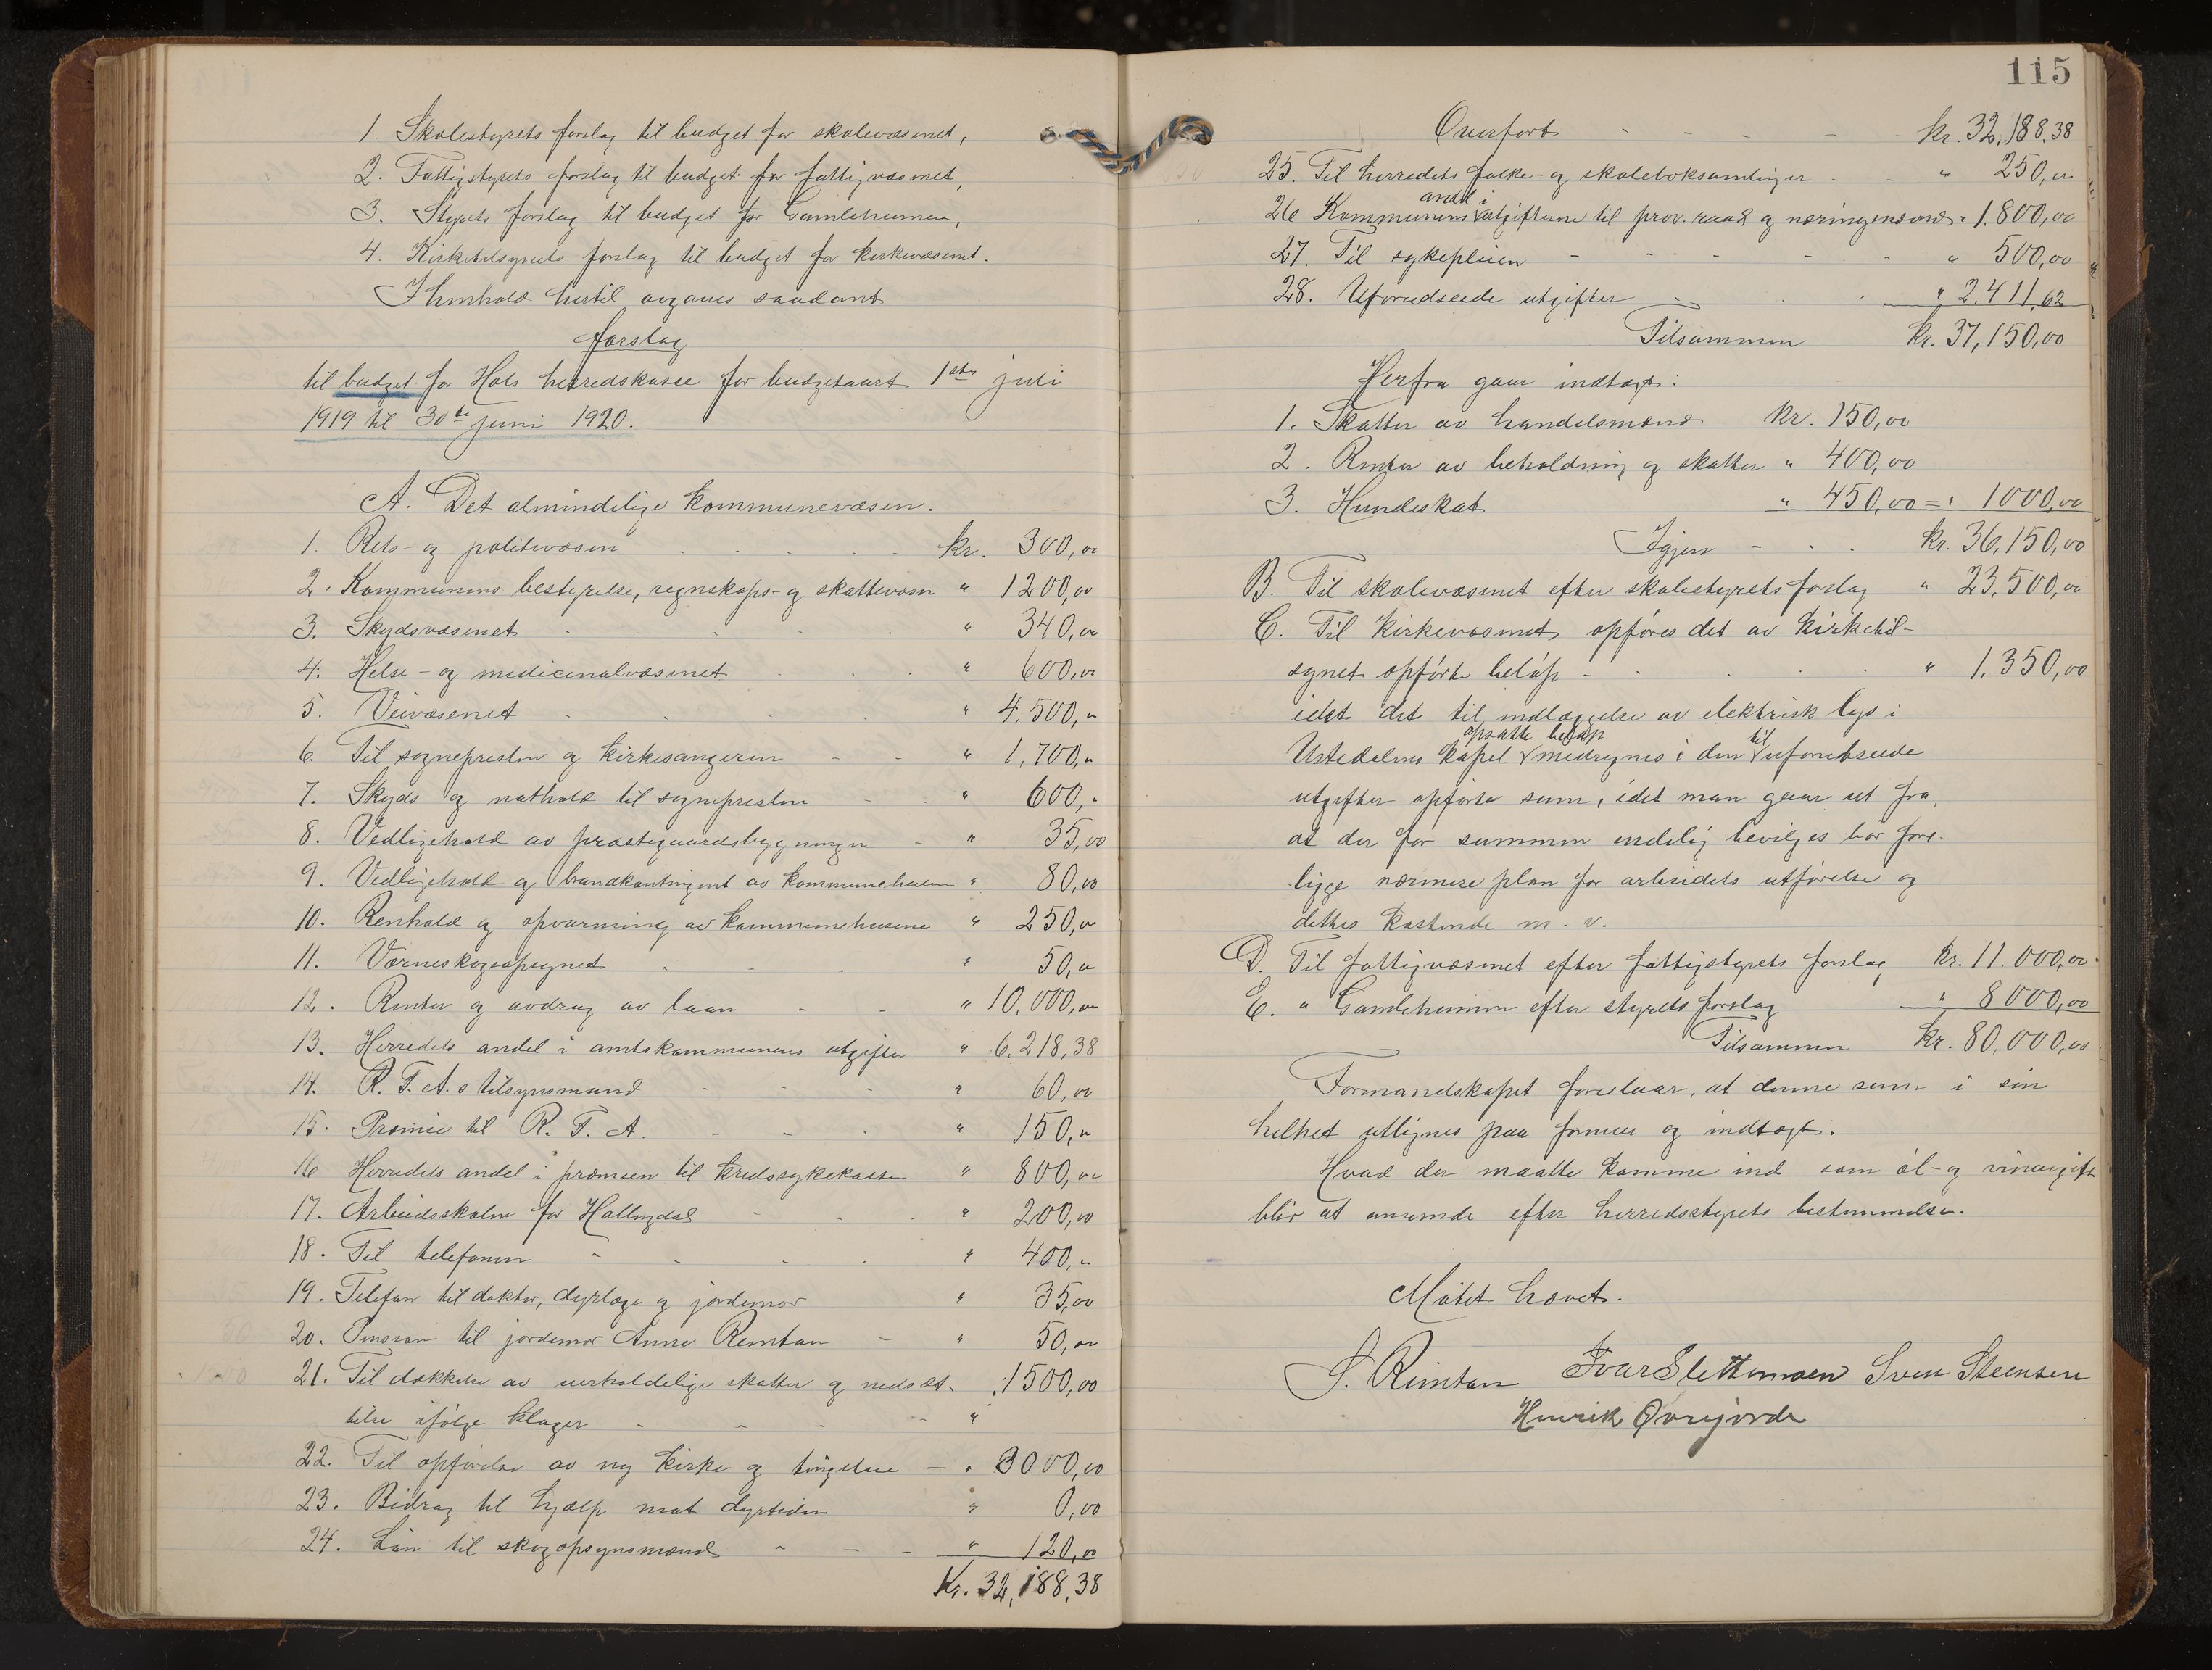 1. Skolestyrets forslag til budget for skolevæsenet,
2. Fattigstyrets forslag til budget for fattigvæsenet,
3. Styrets forslag til budget for Gamlehemmen,
4. Kirketilsynets forslag til budget for kirkevæsenet.
I henhold hertil avgaves saadant
forslag
til budget for Hols herredskasse for budgetaaret 1ste juli
1919 til 30te juni 1920.
A. Det almindelige kommunevæsen.
1. Rets- og politivæsen - - - - - kr. 300,00
2. Kommunens bestyrelse, regnskaps- og skattevæsen " 1200,00
3. Skydsvæsenet - - - - " 340,00
4. Helse- og medicinalvæsenet - - - " 600,00
5. Veivæsenet - - - - " 4.500,"
6. Til sognepresten og kirkesangeren - - " 1,700,"
7. Skyds og nathold til sognepresten - - " 600,"
8. Vedlikehold av præstegaardsbygninger - " 35,00
9. Vedlikehold og brandkontingent av kommunehusene " 80,00
10. Renhold og opvarming av kommunehusene " 250,00
11. Værneskogsopsynet - - - " 50,00
12. Renter og avdrag av laan - - " 10,000,00
13. Herredets andel i amtskommunens utgifter " 6.218,38
14. R.F.A.s tilsynsmand - - - " 60,00
15. Præmie til R.F.A. - - - " 150,"
16 Herredets andel i præmien til kredssykekassen " 800,00
17. Arbeidsskolen for Hallingdal - - - " 200,00
18. Til telefonen - - - - " 400,"
19. Telefon til doktor, dyrlæge og jordemor " 35,00
20. Pension til jordemor Anne Reintan - " 50,00
21. Til dækkelse av uerholdelige skatter og nedsæt- " 1500,00
telse ifølge klager - - - - "
22. Til opførelse av ny kirke og tinghus - " 3000,00
23. Bidrag til hjælp mot dyrtiden " 0,00
24. Løn til skogopsynsmænd - - - " 120,00
Kr. 32,188,38
115
Overført - - - - - kr. 32,188.38
25. Til herredets folke- og skoleboksamlinger - - " 250,00
andel i
26 Kommunens utgifterne til prov.raad og næringsnævnd " 1.800,00
27. Til sykepleien - - - - - " 500,00
28. Uforudseede utgifter - - - " 2.411,62
Tilsammen kr. 37,150,00
Herfra gaar indtægt:
1. Skatter av handelsmænd kr. 150,00
2. Renter av beholdning og skatter " 400,00
3. Hundeskat " 450,00 = " 1000,00
Igjen - - - kr. 36,150,00
B. Til skolevæsenet efter skolestyrets forslag " 23,500,00
C. Til kirkevæsenet opføres det av kirketil-
synet opførte beløp - - - - " 1,350,00
idet det til indlæggelse av elektrisk lys i
opsatte beløp til
Ustedalens kapel medregnes i den uforudseede
utgifter opførte sum, idet man gaar ut fra,
at der før summen endelig bevilges bør fore-
ligge nærmere plan for arbeidets utførelse og
dettes kostende m. v.
D. Til fattigvæsenet efter fattigstyrets forslag kr. 11.000,00
E. " Gamlehemmen efter styrets forslag " 8000,00
Tilsammen kr. 80,000,00
Formandskapet foreslaar, at denne sum i sin
helhet utlignes paa formue og indtægt.
Hvad der maatte komme ind som øl- og vinavgift
blir at anvende efter herredsstyrets bestemmelse.
Møtet hævet.
S. Reintan Ivar Slettemoen Sven Steensen
Henrik Øvrejorde